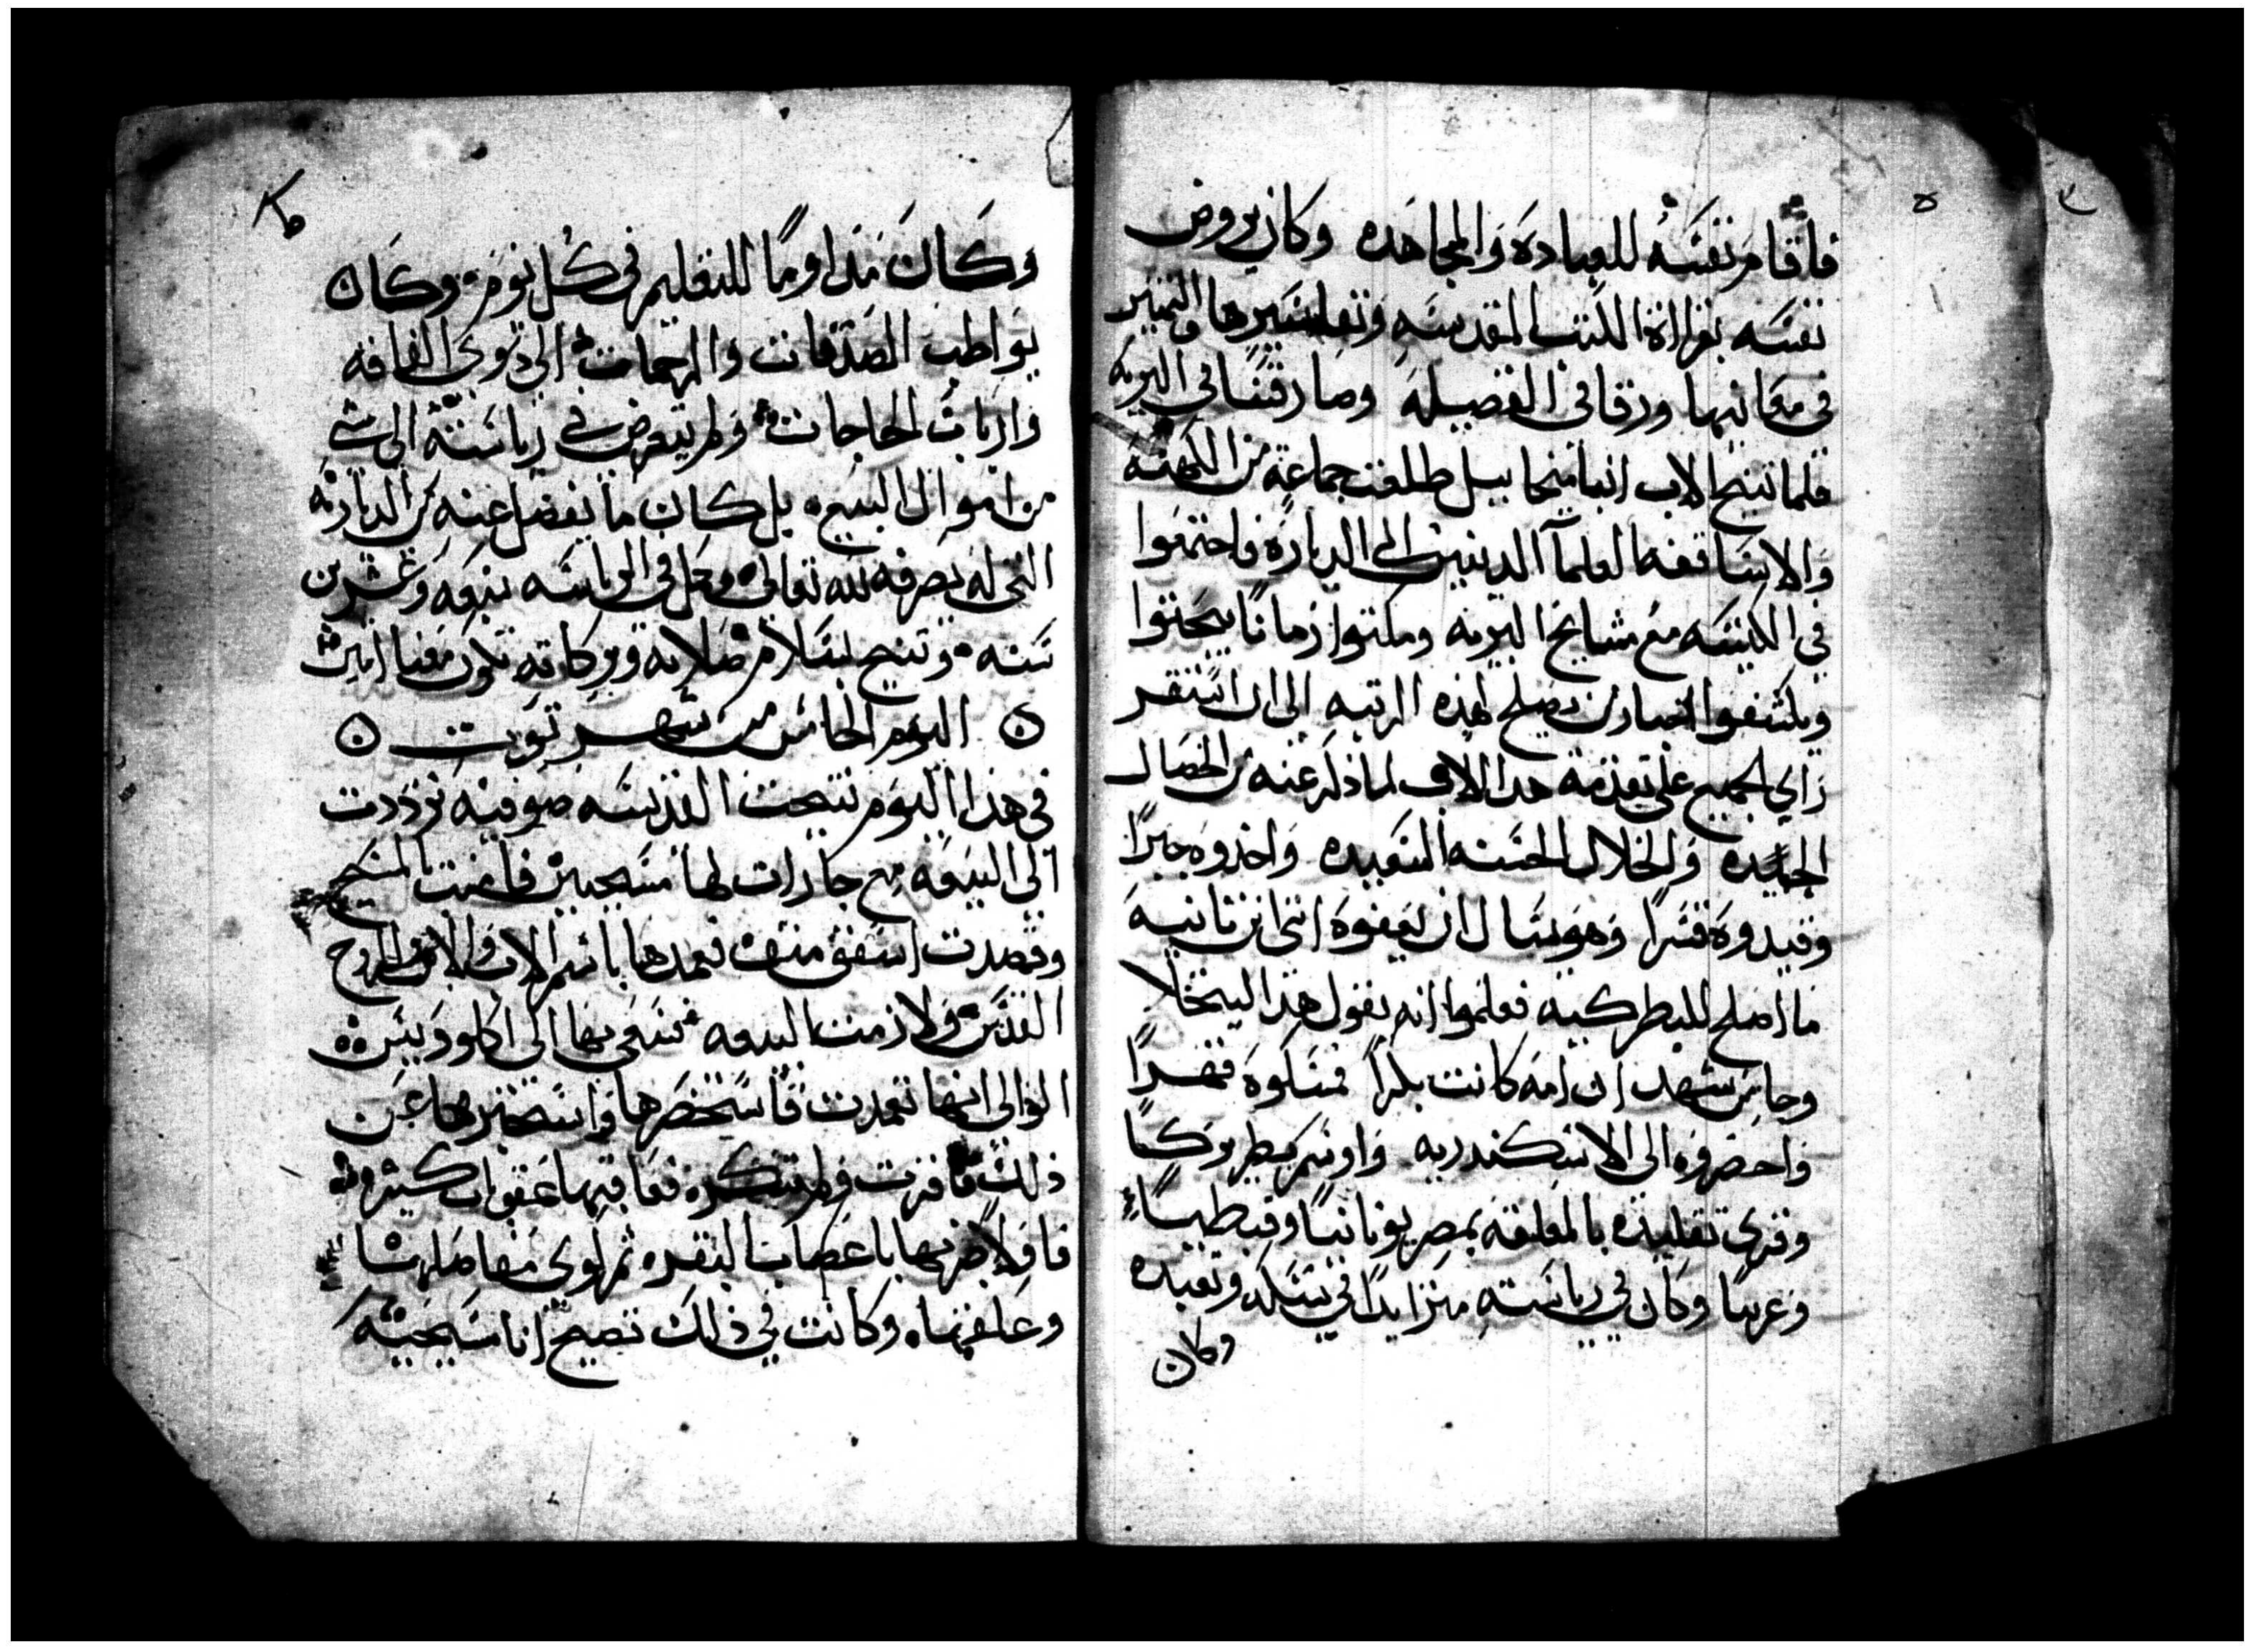 فاقام نفسه للعباده والمجاهده وكان يروض
نفسه بقراة الكتب المقدسه وتفاسيرها والتميز
في معانيها ورقا في الفضيله وصار قسا في البريه
فلما تنيح الاب انبا ميخاييل طلعت جماعة من الكهنه
والاساقفه العلمآ الدينين الى الديارة فاجتمعوا
في الكنيسه مع مشايخ البريه ومكتوا زمانا يبحتوا
ويكشفوا اخبار من يصلح لهذه الرتبه الى ان استقر
راي الجميع على تقدمة هدا الاب لما ذكر عنه من الخصال
الحميده والخلال الحسنه السعيده واخدوه جبرا
وقيدوه قسرا وهو يسال ان يعفوه انني ابن ثانيه
ما اصلح للبطركيه فعلموا انه يقول هذا ليتخلا
وجا من شهد ان امه كانت بكرا فمسكوه قهرا
واحضروه الى الاسكندريه واوسم بطريركا
وقري تقليده بالمعلقه بمصر يونانيا وقبطيا
وعربيا وكان في رياسته متزايدا في نسكه وتعبده
وكان
وكان مداوما للتعليم في كل يوم وكان
يواطب الصدقات والرحمات الى دوي الفاقه
وارباب الحاجات ولم يتعرض في رياسته الى شي
من اموال البيع بل كان ما يفضل عنه من الديارية
التي له يصرفه لله تعالى وكمل في الرياسه سبعه وعشرين
سنه وتنيح بسلام صلاته وبركاته تكون معنا امين
اليوم الخامس من شهر توت
في هذا اليوم تنيحت القديسه صوفيه ترددت
الى البيعه مع جارات لها مسيحيين فامنت بالمسيح
وقصدت اسقف منف فعمدها باسم الاب والابن والروح
القدس ولازمت البيعه فسعي بها الى اكلوديس
الوالى انها تعمدت فاستحضرها واستخبرها عن
ذلك فاقرت ولم تنكره فعاقبها عقوبات كثيره
فاولا ضربها باعصاب البقر ثم كوي مفاصلها
وعلقها وكانت في ذلك تصيح انا مسيحيه